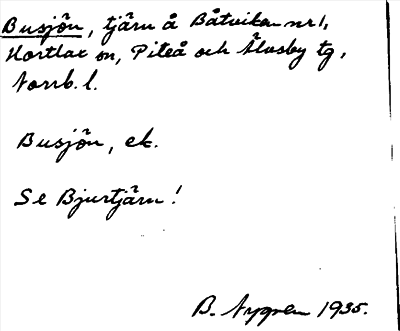 Busjön, tjärn å Båtviken nr 1,
Hortlax sn, Piteå och Älvsby tg,
Norrb. l.
Busjön, ek.
Se Bjurtjärn!
B. Nygren 1935.